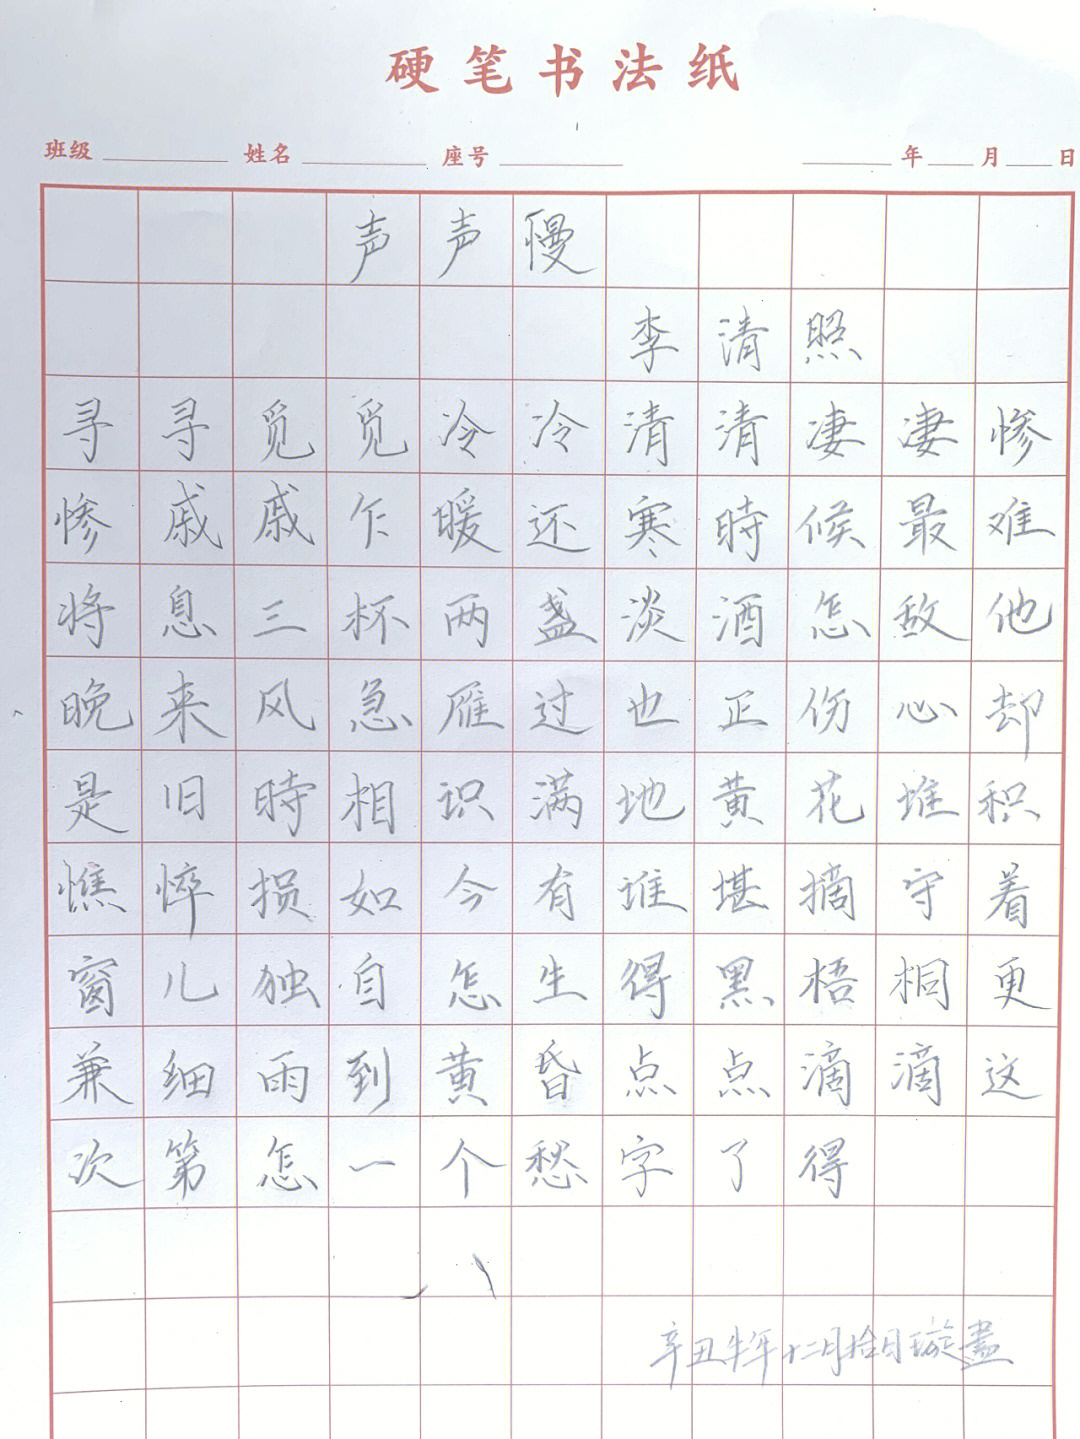 硬笔书法纸
班级 姓名 座号 年 月 日
声声慢
李清照
寻寻觅觅冷冷清清凄凄惨
惨戚戚乍暖还寒時候最难
将息三杯两盏淡酒怎敌他
晚来风急雁过也正伤心却
是旧時相识满地黄花堆积
憔悴损如今有谁堪摘守着
窗儿独自怎生得黑梧桐更
兼细雨到黄昏点点滴滴这
次第怎一个愁字了得
辛丑牛年十二月拾日璇书